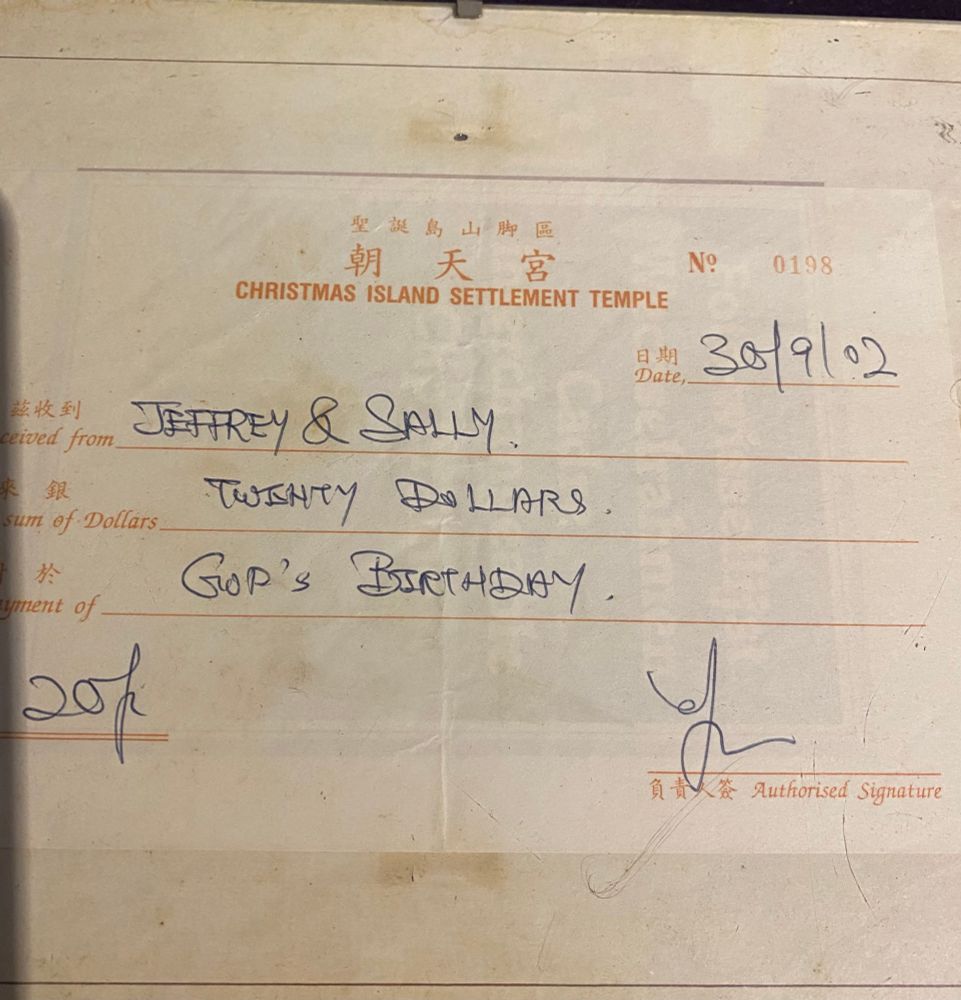 聖誕島山脚區
朝天宮
CHRISTMAS ISLAND SETTLEMENT TEMPLE
Nº 0198
日期
Date, 30/9/02
茲收到
ceived from JEFFREY & SALLY.
來銀
sum of Dollars TWENTY DOLLARS.
於
yment of GOD'S BIRTHDAY.
20/-
負責人簽 Authorised Signature